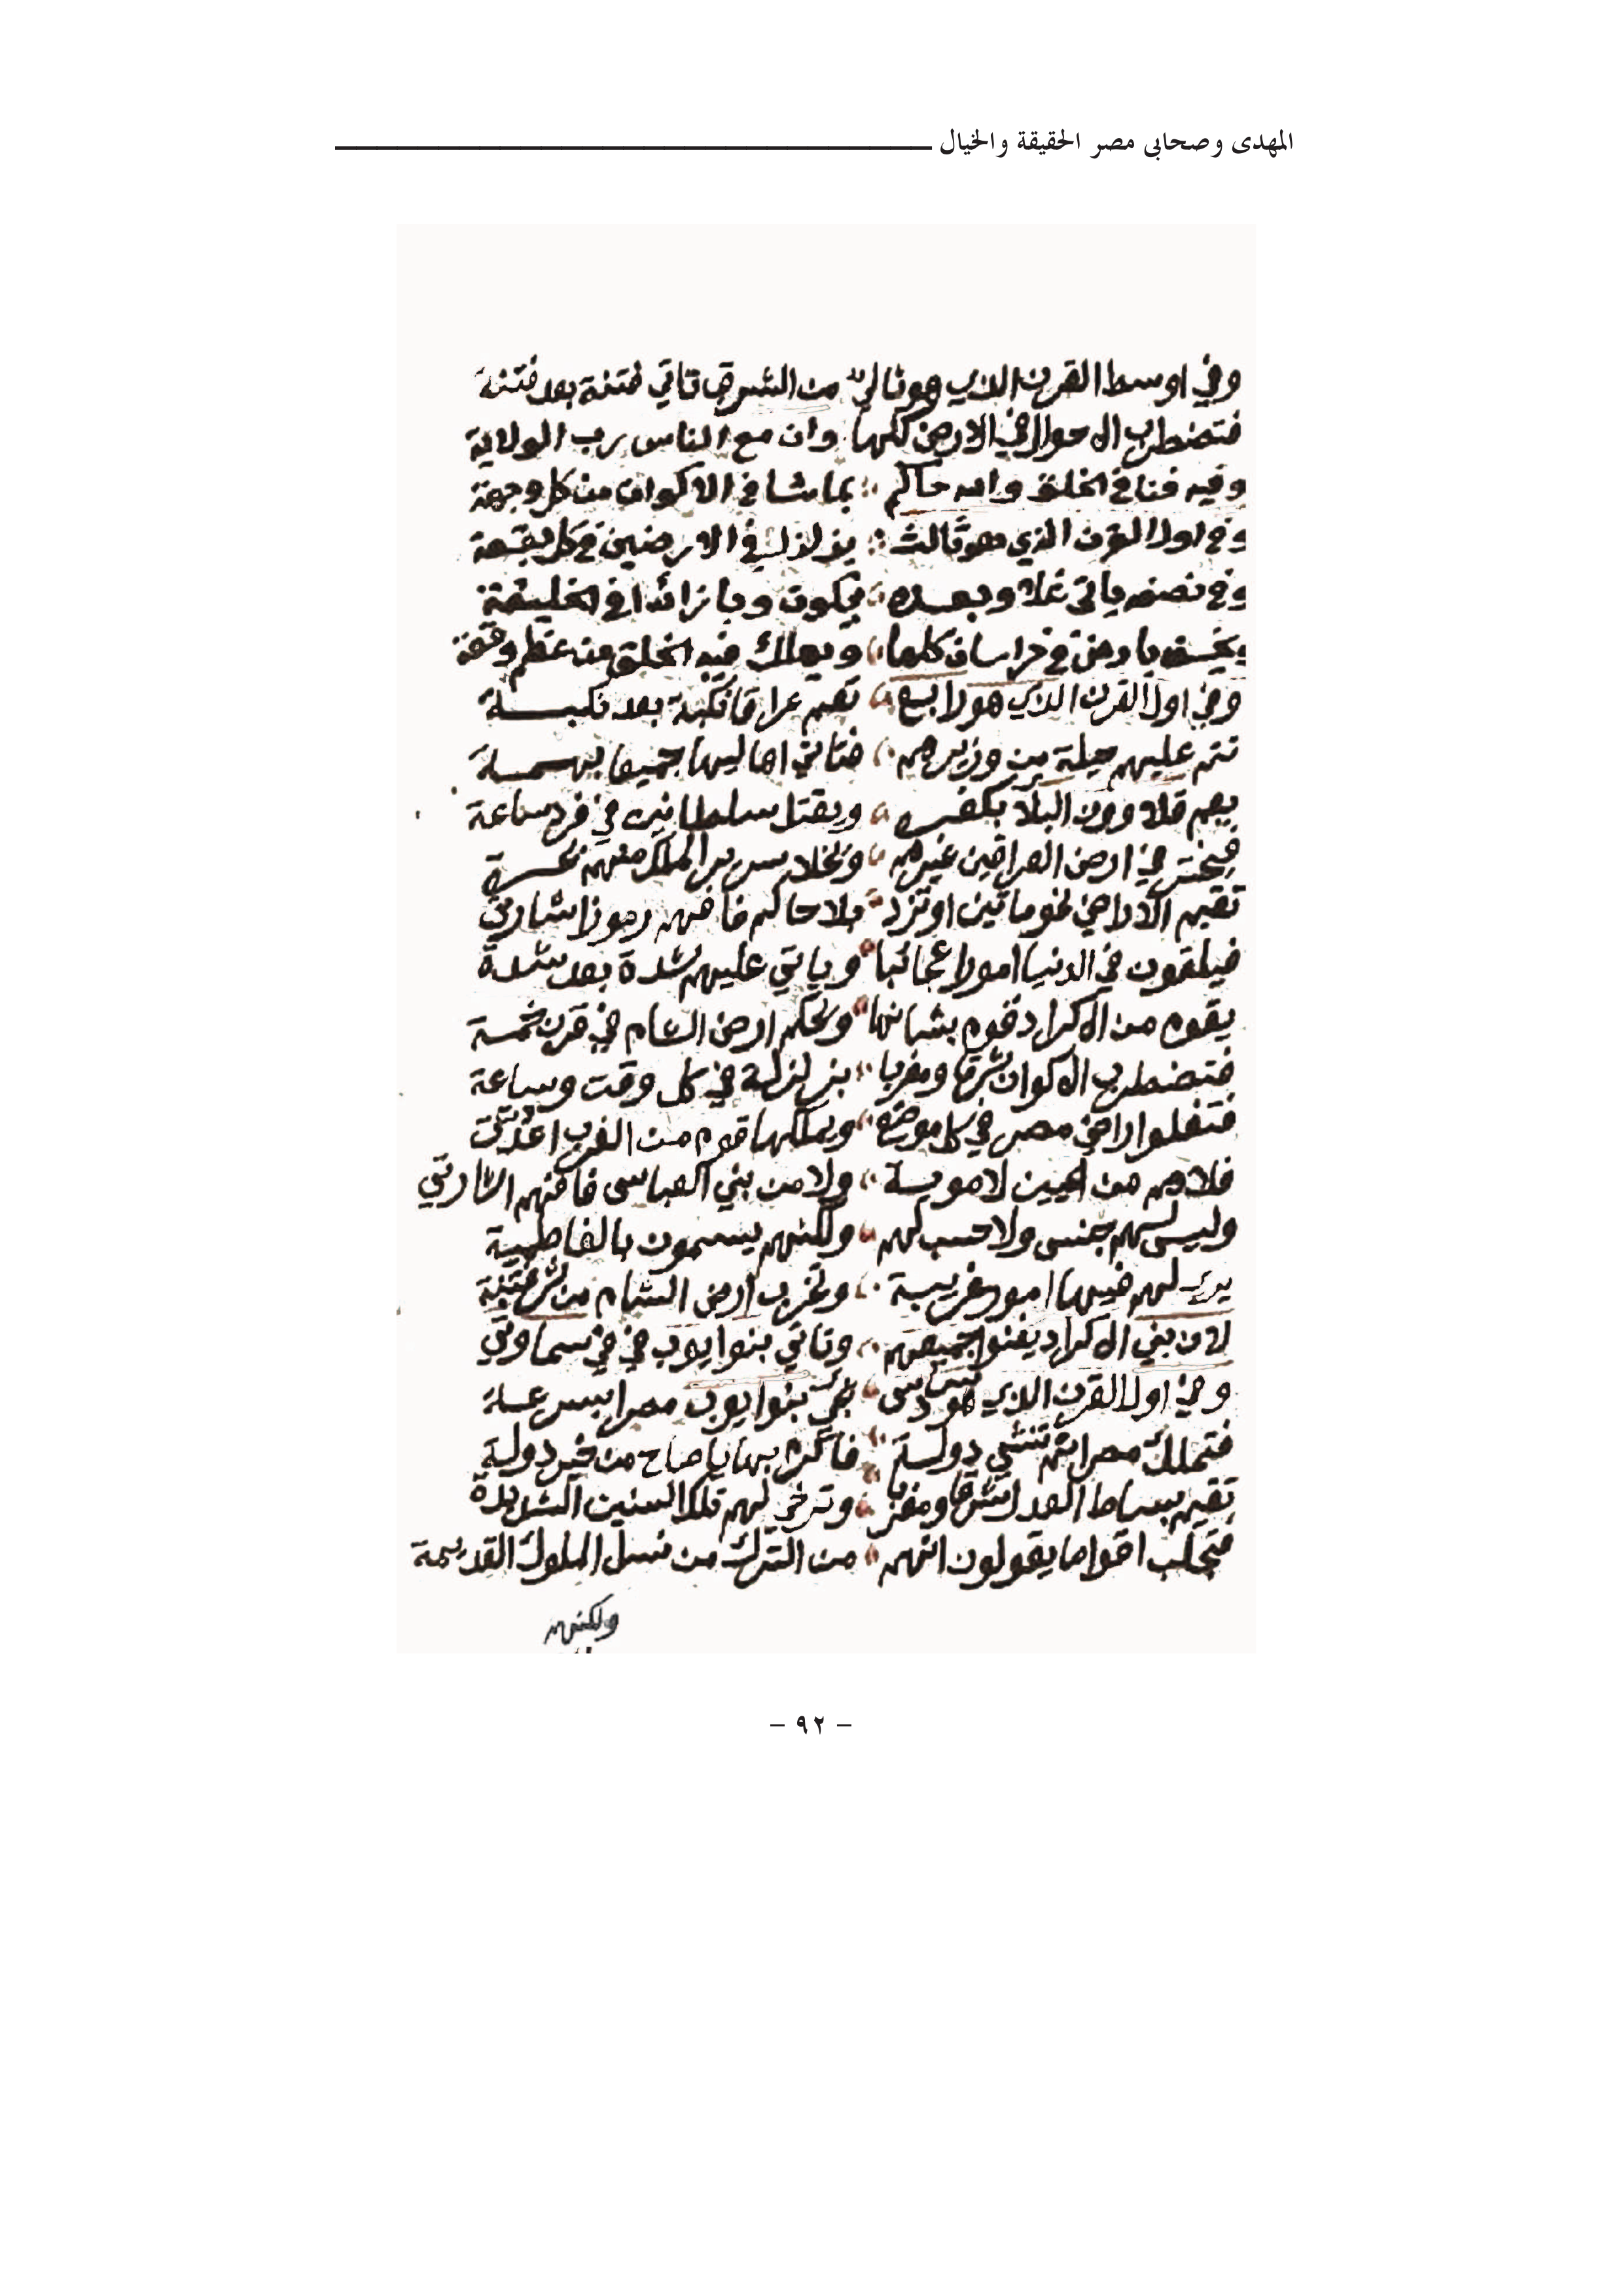 المهدى وصحابى مصر الحقيقة والخيال
وفي اوسط القرن الذي هو تالي من الشرق تاتي فتنة بعد فتنة
فتضطرب الاحوال في الارض كلها وان مع الناس رب الولاية
وفيه فنا في الخلق والله حاكم بما شا في الاكوان من كل وجهة
وفي اول القرن الذي هو ثالث يزلزل في الارضين في كل بقعة
وفي نصفه ياتي غلا وبعده يكون وبا زائدا في الخليقة
ويخسف بارض في خراسان كلها ويهلك فيه الخلق من عظم وقعة
وفي اول القرن الذي هو رابع تقيم عراقا نكبة بعد نكبة
تتم عليهم حيلة من وزيرهم فتاتي اهاليها جميعا بهسمة
يهم قلاوون البلاد بكفره ويقتل سلطانين في فرد ساعة
في ارض العراقين غيرهم وتخلا سرير الملك منهم
تقيم الاراضي نحو ماتين او تزد بلا حاكم فافهم رموز اشارتي
فيلقون في الدنيا امورا عجائبا وياتي عليهم شدة بعد شدة
يقوم من الاكراد قوم بشانها وتحكم ارض الشام في قرن خمسة
فتضطرب الاكوان شرقا ومغربا بزلزلة في كل وقت وساعة
فتغلوا اراضي مصر في كل موضع ويملكها قوم من الغرب اعدتي
فلاهم من لاموية ولا من بني العباس فافهم اشارتي
وليس لهم جنس ولا حسب لهم ولكنهم يسمون بالفاطمية
يرى لهم فيها امور غريبة وتخرب ارض الشام من شر فتنة
لان بني الاكراد يفنوا جميعهم وتاتي بنوا يوب في في سماوتي
وفي اول القرن الذي هو سادس بنوا يوب مصرا بسرعة
فتملك مصرا ثم تنشي دولة فاكرم بها يا صاح من خير دولة
تقيم بساط العدل شرقا ومغربا وترخي لهم تلك السنين الشديدة
فتجلب اقواما يقولون انهم من الترك من نسل الملوك القديمة
ولكنهم
- ٩٢ -